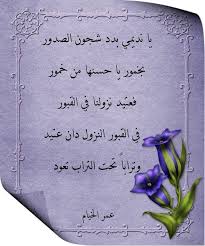 يا نديمي بدد شجون الصدور
بخمور يا حسنها من خمور
فعتيد نزولنا في القبور
في القبور النزول دان عتيد
وترابا تحت التراب تعود
عمر الخيام